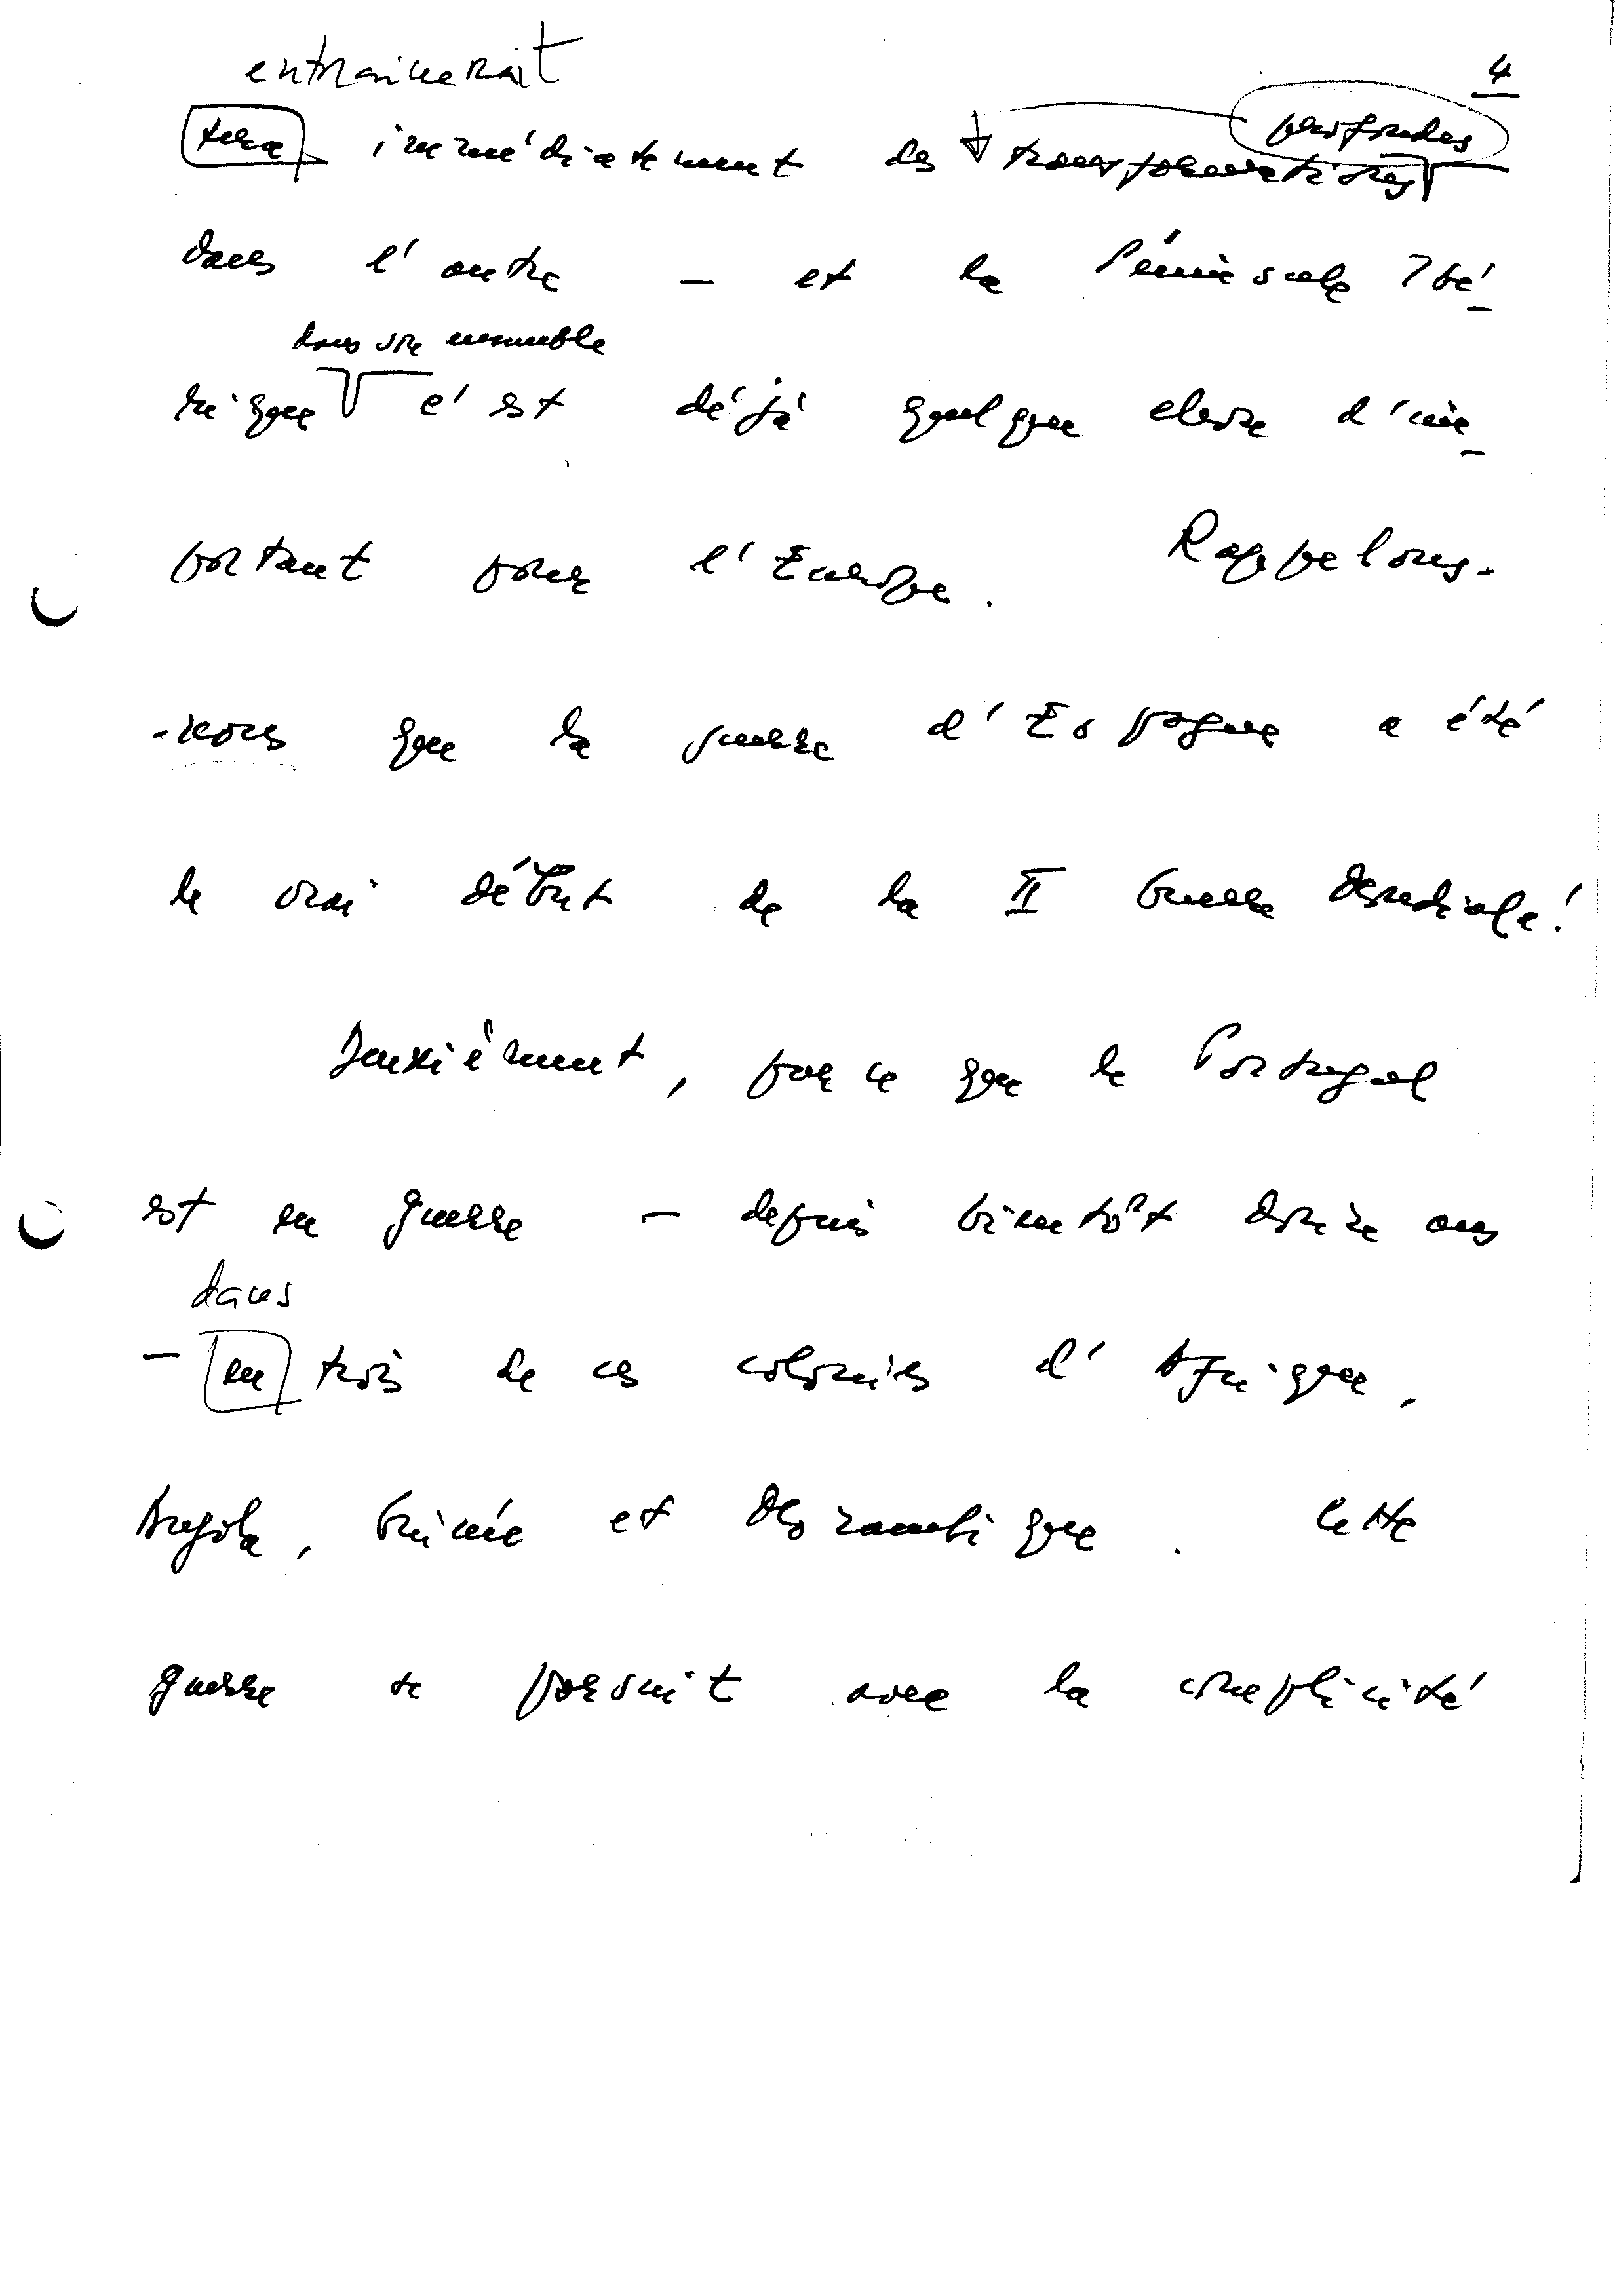 4
entrainerait
profondes
fera immédiatement des transformations
dans l'autre — et la Péninsule Ibé-
rique c'est déjà quelque chose d'im-
dans son ensemble
portant pour l'Europe. Rappelons-
-nous que la guerre d'Espagne a été
le vrai début de la II Guerre Mondiale!
Deuxièment, par ce que le Portugal
est en guerre — depuis bientôt douze ans
dans
— en trois de ces colonies d'Afrique,
Angola, Guinée et Mozambique. Cette
guerre se poursuit avec la complicité